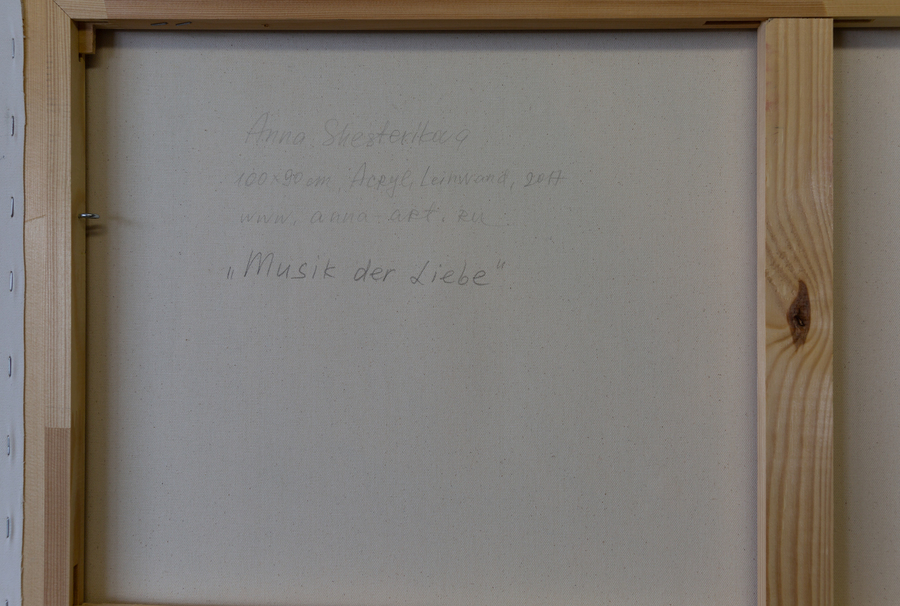 Anna Shesterikova
100x80 cm, Acryl, Leinwand, 2017
www.anna-art.ru
„Musik der Liebe“